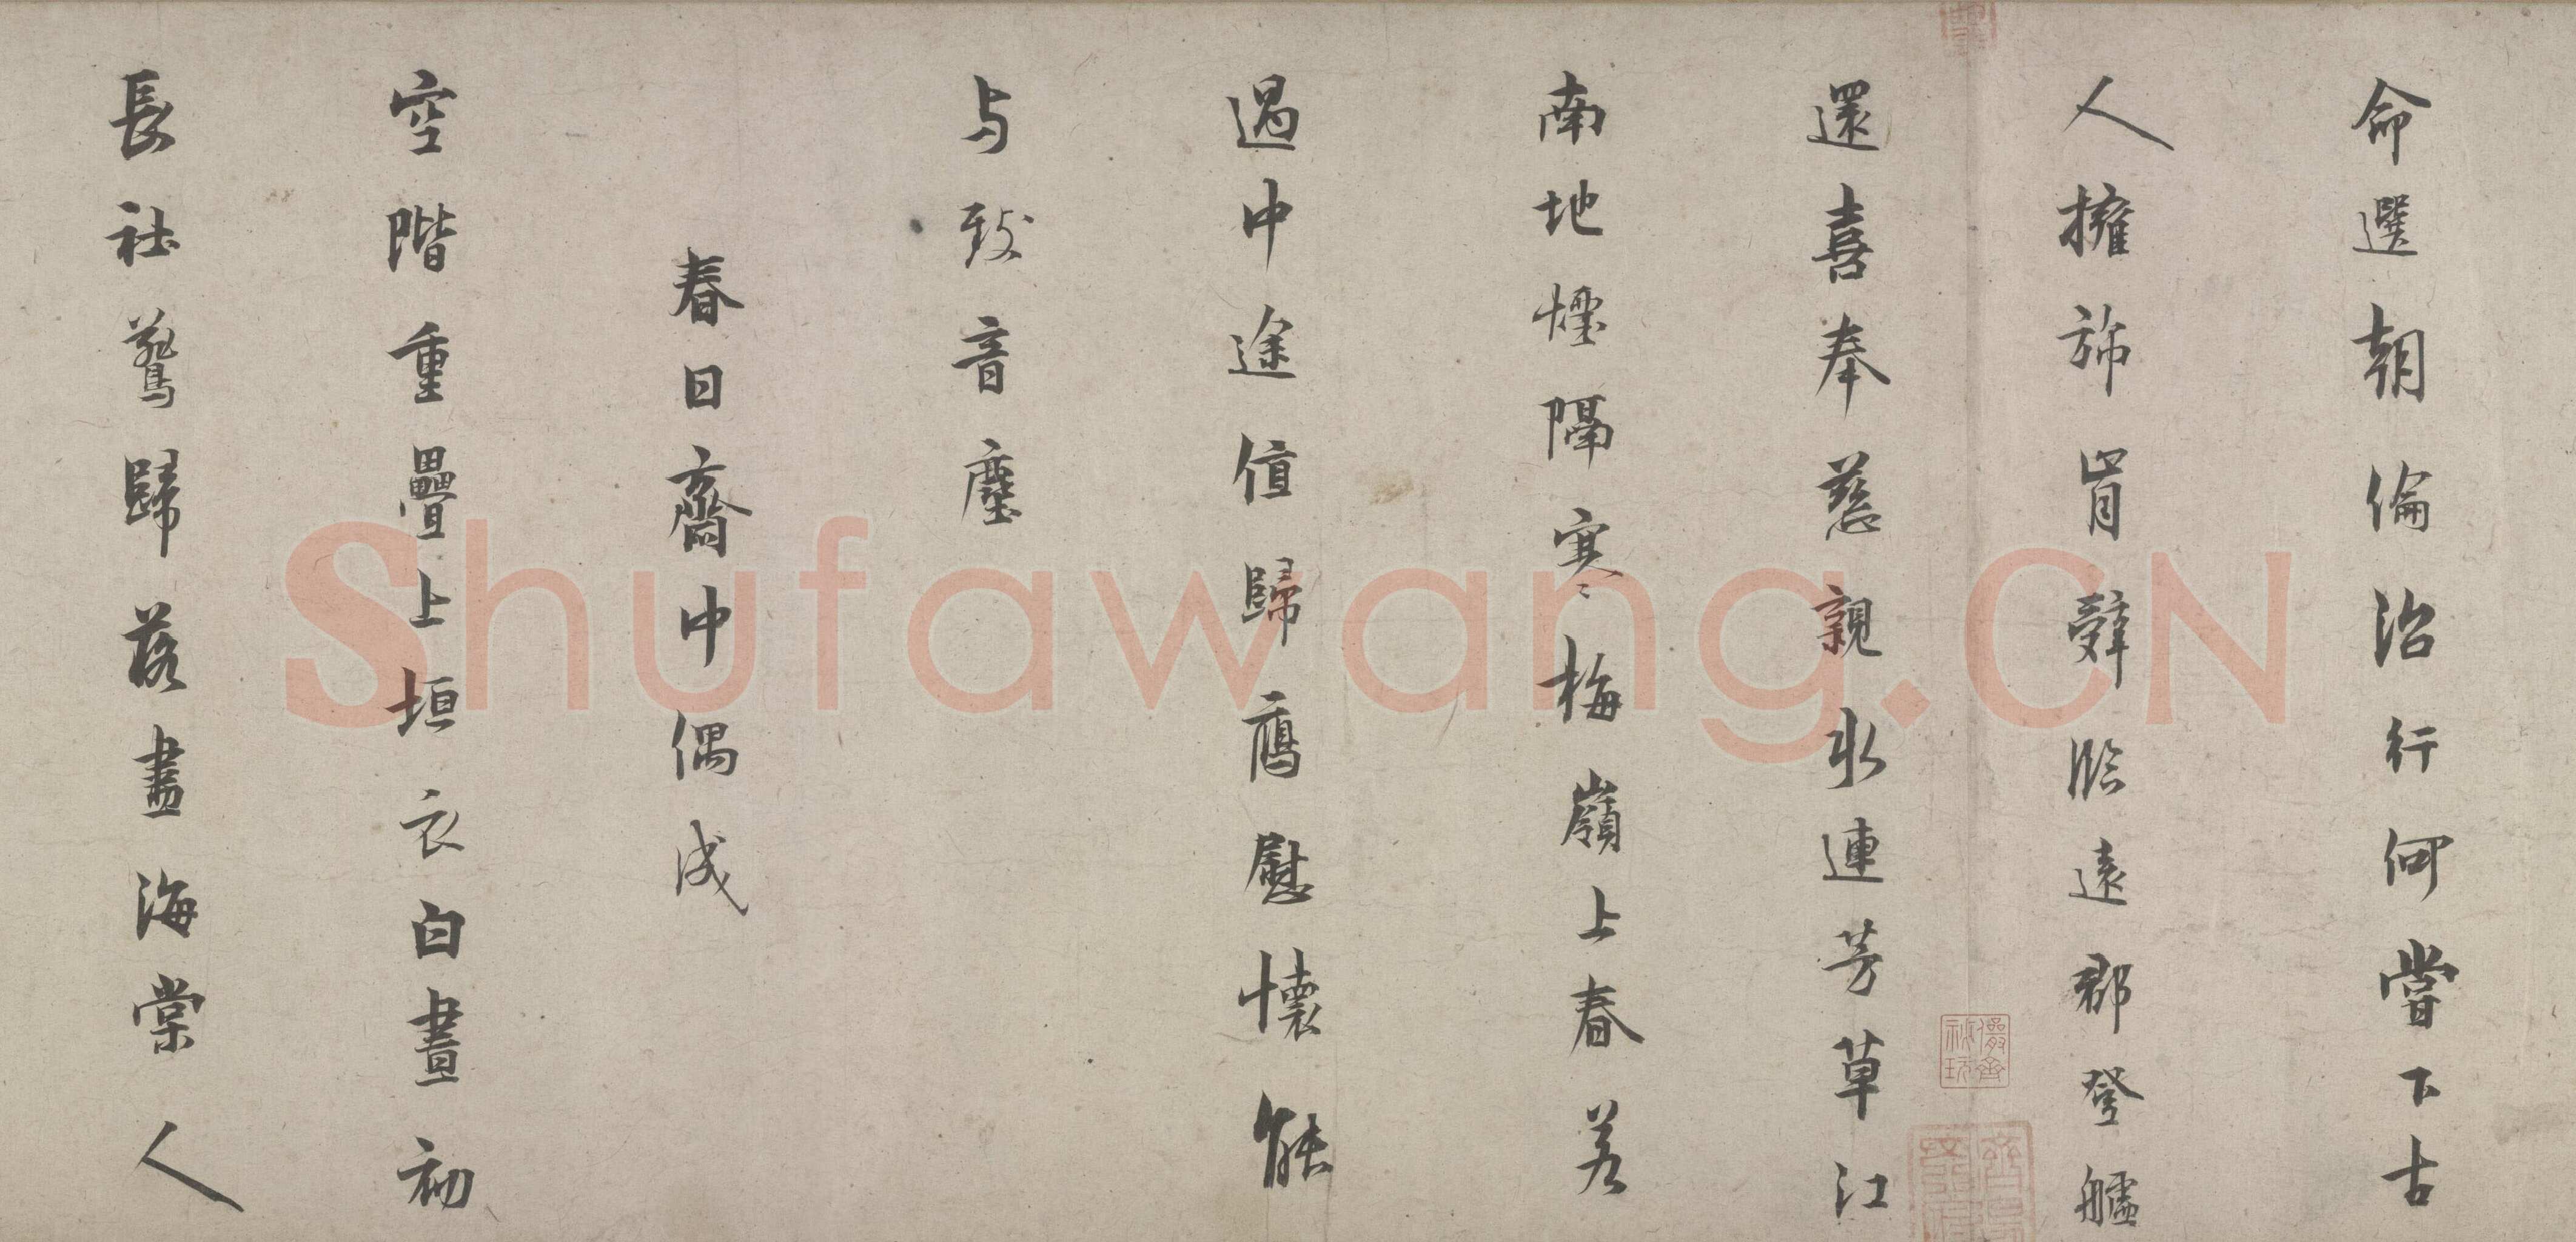 命選朝倫治行何嘗下古
人擁旆肯辭臨遠郡登艫
還喜奉慈親水連芳草江
南地煙隔寒梅嶺上春若
過中途值歸鴈慰懷能
与致音塵
春日齋中偶成
空階重疊上垣衣白晝初
長社鷰歸落盡海棠人
Shufawang.CN